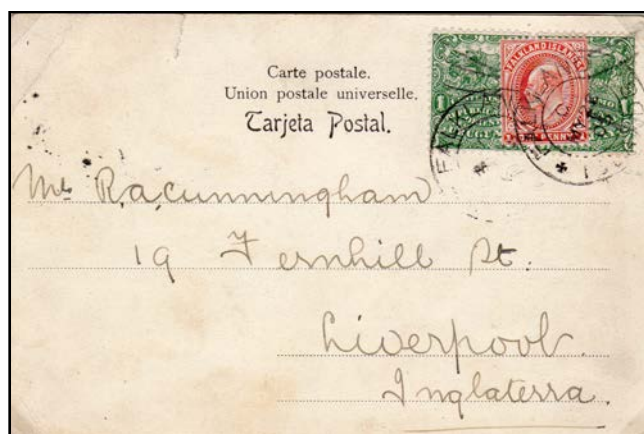 Carte postale.
Union postale universelle.
Tarjeta Postal.
FALKLAND ISLANDS
1
ONE PENNY
FALK
Mr R.a.cunningham
19 Fernhill St.
Liverpool.
Inglaterra.